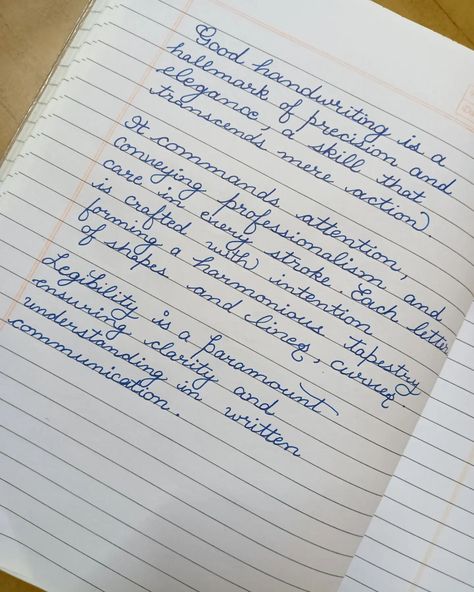 Good handwriting is a
hallmark of precision and
elegance, a skill that
transcends mere action.
It commands attention,
conveying professionalism and
care in every stroke. Each letter
is crafted with intention
forming a harmonious tapestry
of shapes and lines, curves.
Legibility is a paramount
ensuring clarity and
understanding in written
communication.